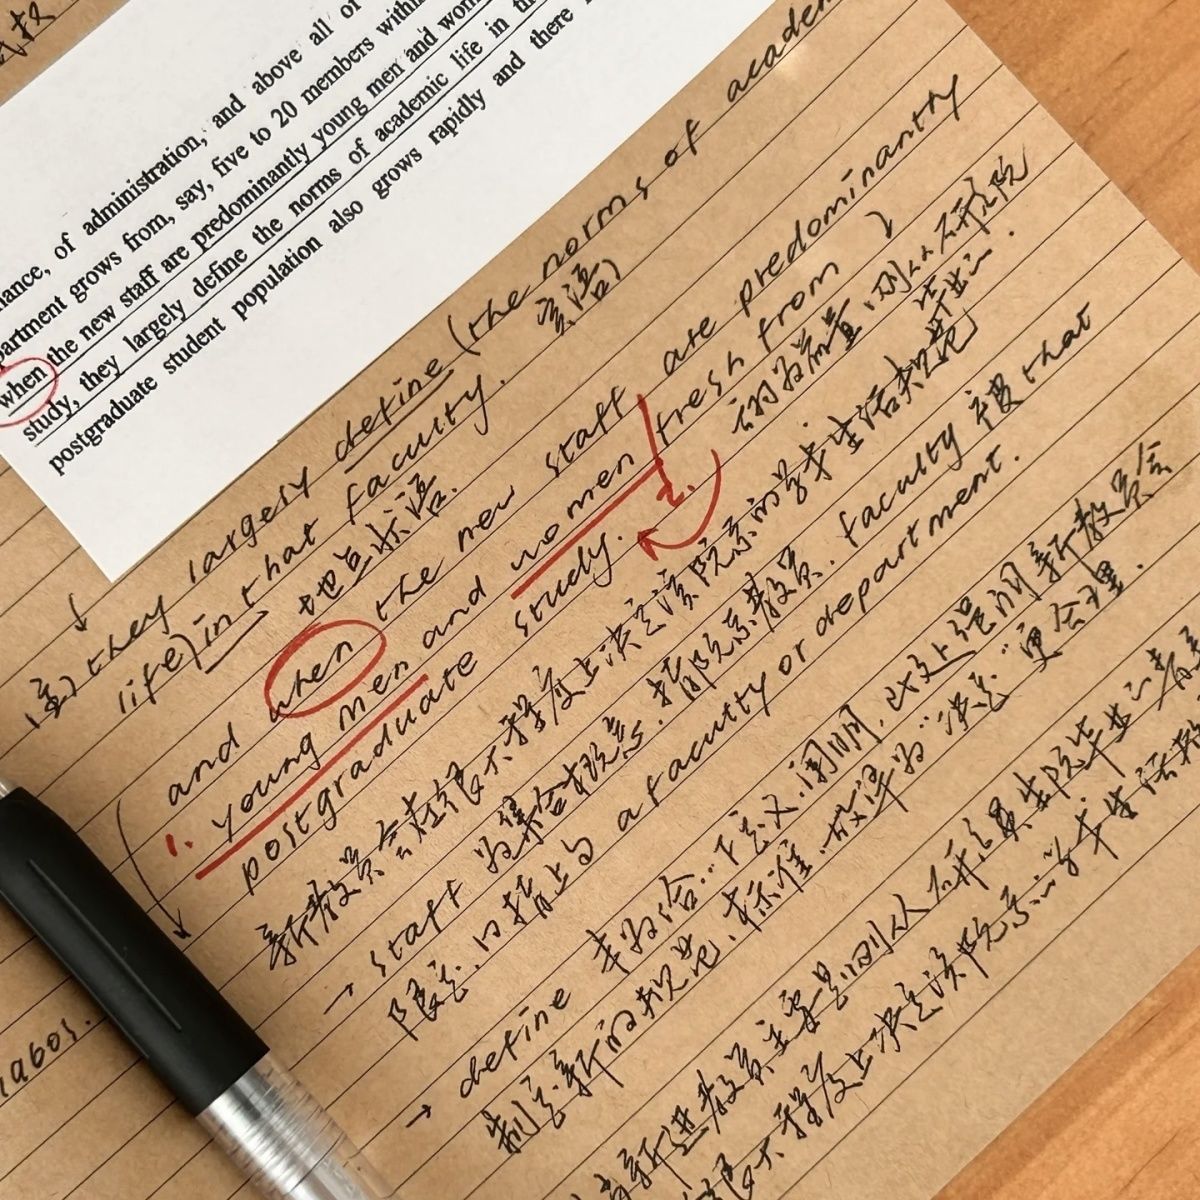 nance, of administration, and above all of
partment grows from, say, five to 20 members within
when the new staff are predominantly young men and wom
study, they largely define the norms of academic life in th
postgraduate student population also grows rapidly and there
(主) they largely define (the norms of academ
宾语)
life) in that faculty.
地点状语.
and when the new staff are predominantly
1. young men and women fresh from
2.
postgraduate study.
新教员会在很大程度上决定该院系的学术生活规范
→ staff 为集合概念, 指院系教员. faculty 被 that
限定, 口指上句 a faculty or department.
→ define 本为给…下定义, 阐明, 此处强调新教员会
制定新的规范, 标准, 故译为"决定"更合理.
新进教员主要是刚从研究生院毕业的青
很大程度上决定该院系的学术生活
labos.